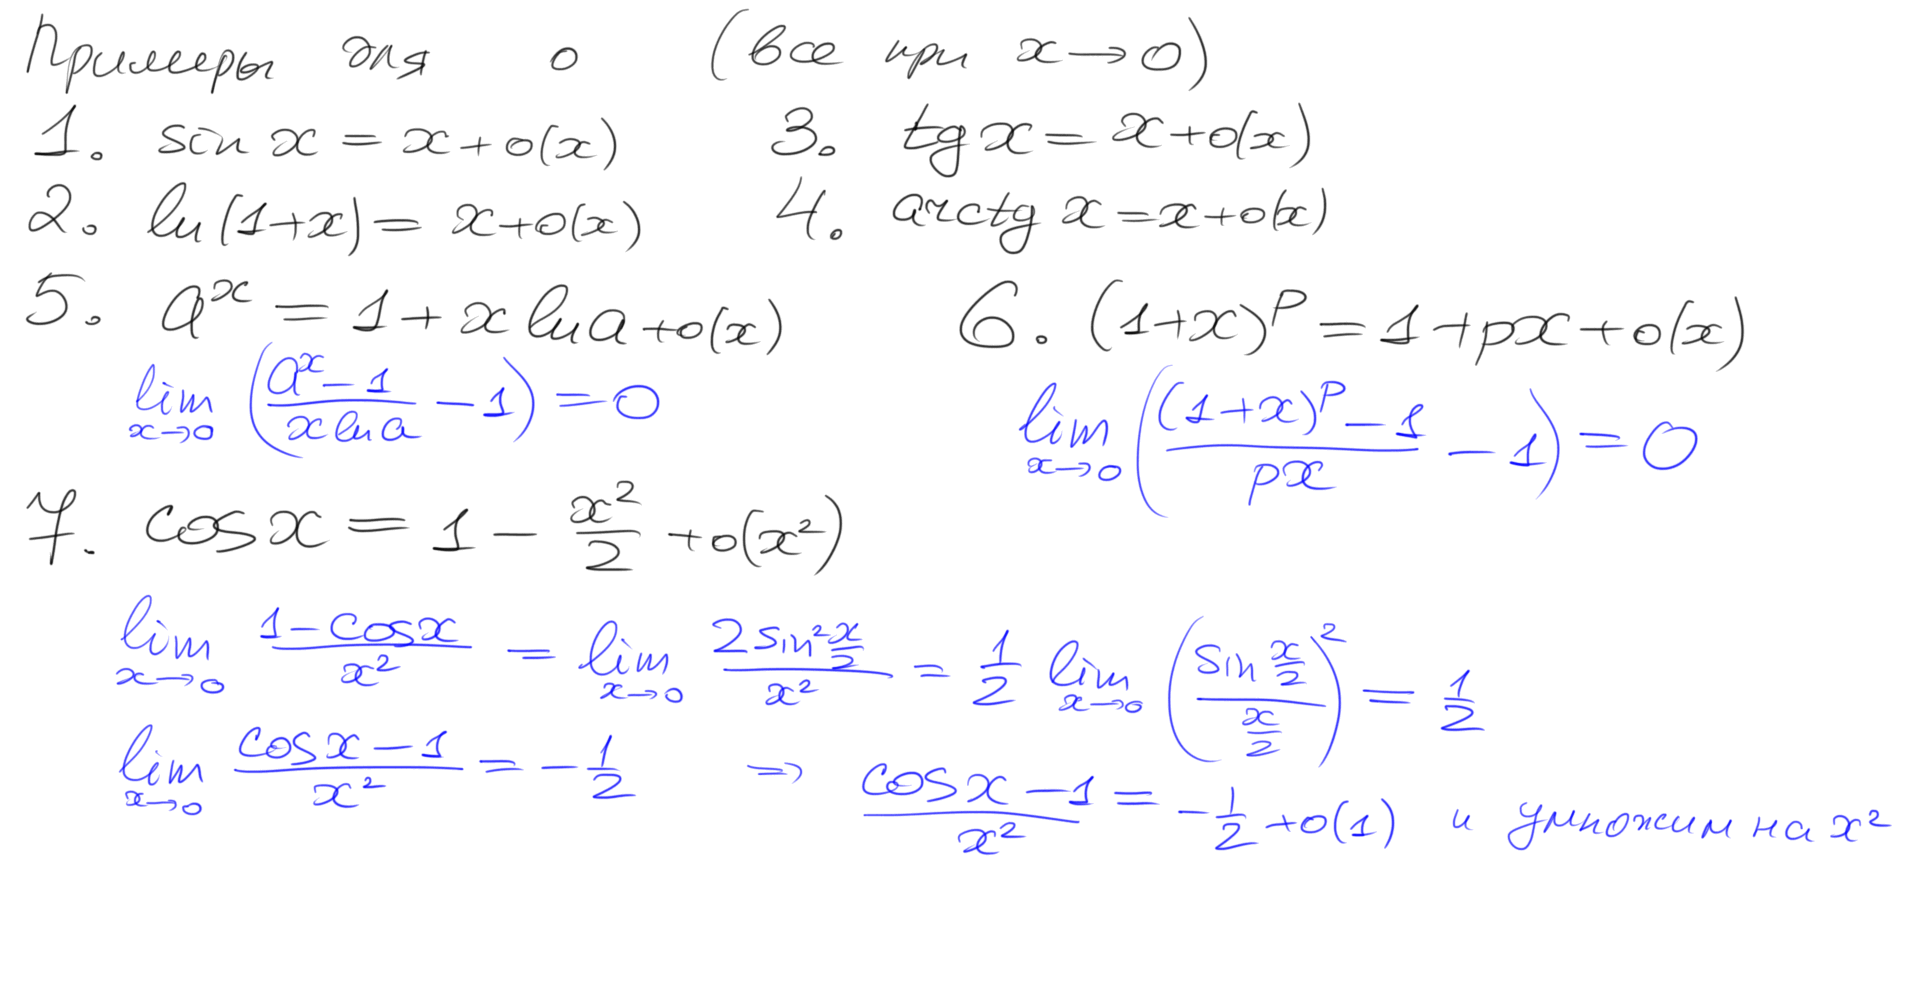 Примеры для o (все при x→0)
1. sin x = x + o(x) 3. tg x = x + o(x)
2. ln(1+x) = x + o(x) 4. arctg x = x + o(x)
5. a^x = 1 + x ln a + o(x) 6. (1+x)^p = 1 + px + o(x)
lim_{x→0} ((a^x − 1)/(x ln a) − 1) = 0 lim_{x→0} (((1+x)^p − 1)/(px) − 1) = 0
7. cos x = 1 − x²/2 + o(x²)
lim_{x→0} (1 − cos x)/x² = lim_{x→0} (2 sin² x/2)/x² = 1/2 lim_{x→0} ((sin x/2)/(x/2))² = 1/2
lim_{x→0} (cos x − 1)/x² = −1/2 ⇒ (cos x − 1)/x² = −1/2 + o(1) и умножим на x²